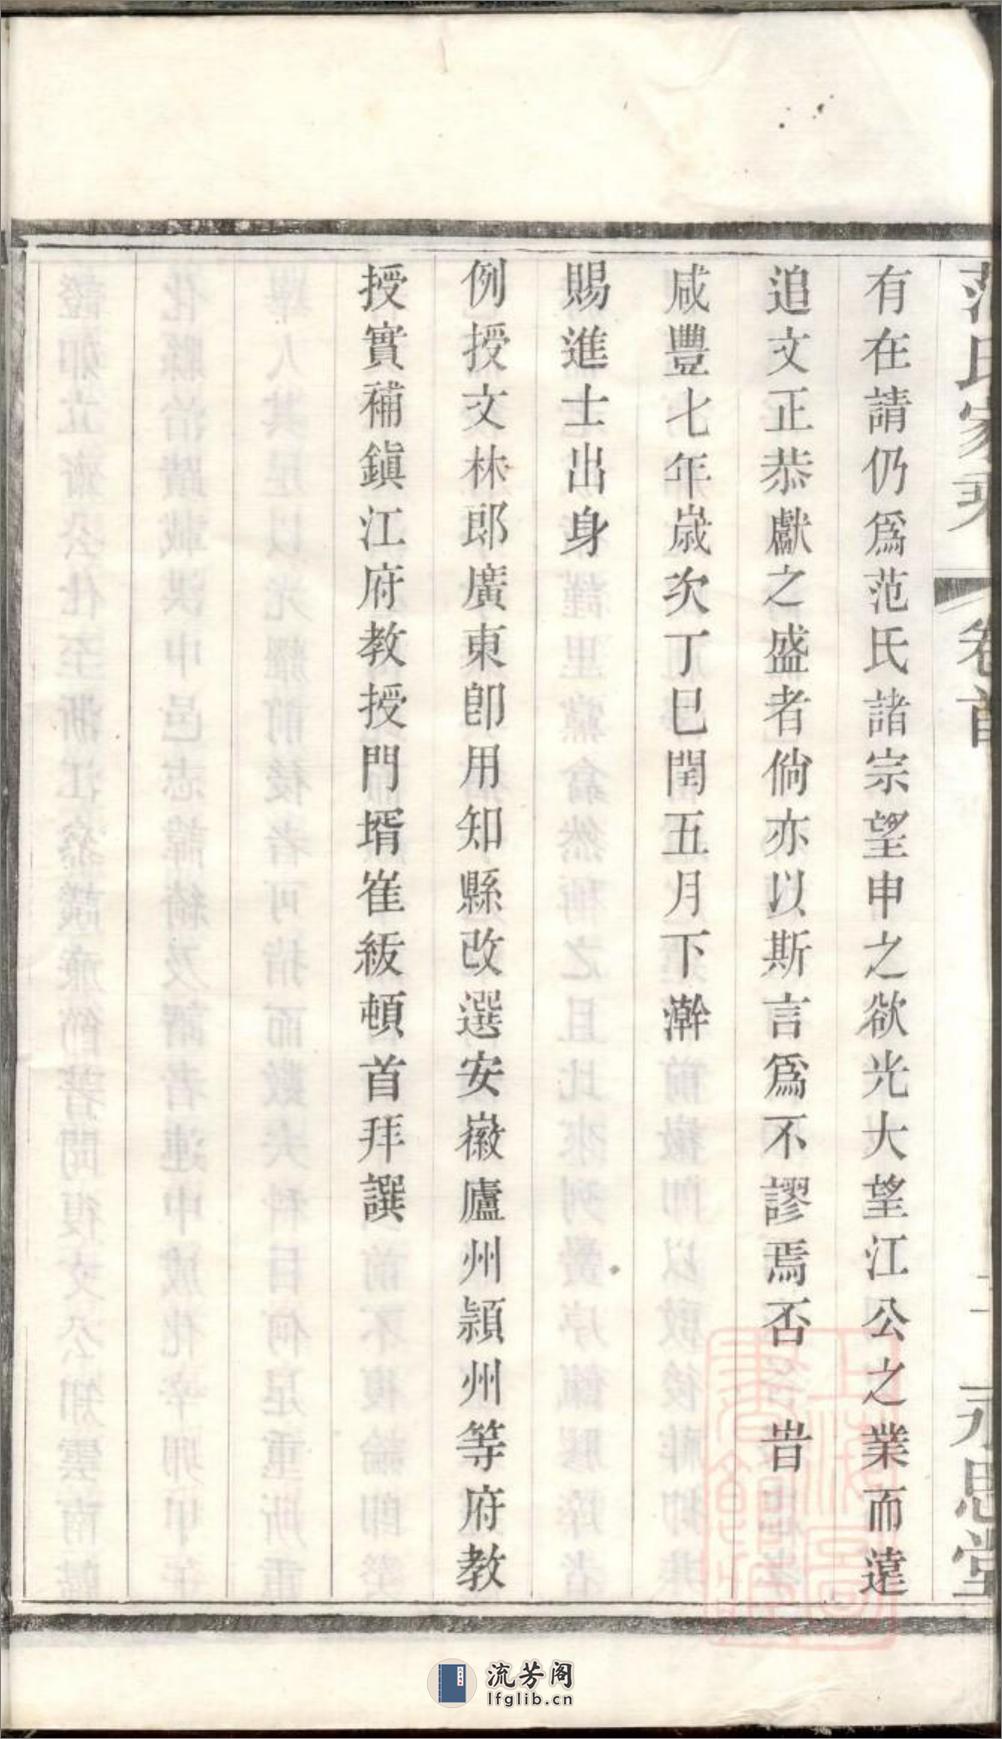 范氏家乘 卷首 永思堂
有在請仍爲范氏諸宗望申之欲光大望江公之業而遠
追文正恭獻之盛者倘亦以斯言爲不謬焉否 旹
咸豐七年歲次丁巳閏五月下澣
賜進士出身
例授文林郎廣東卽用知縣改選安徽廬州潁州等府教
授實補鎭江府教授門壻崔紱頓首拜譔
流芳阁
lfglib.cn